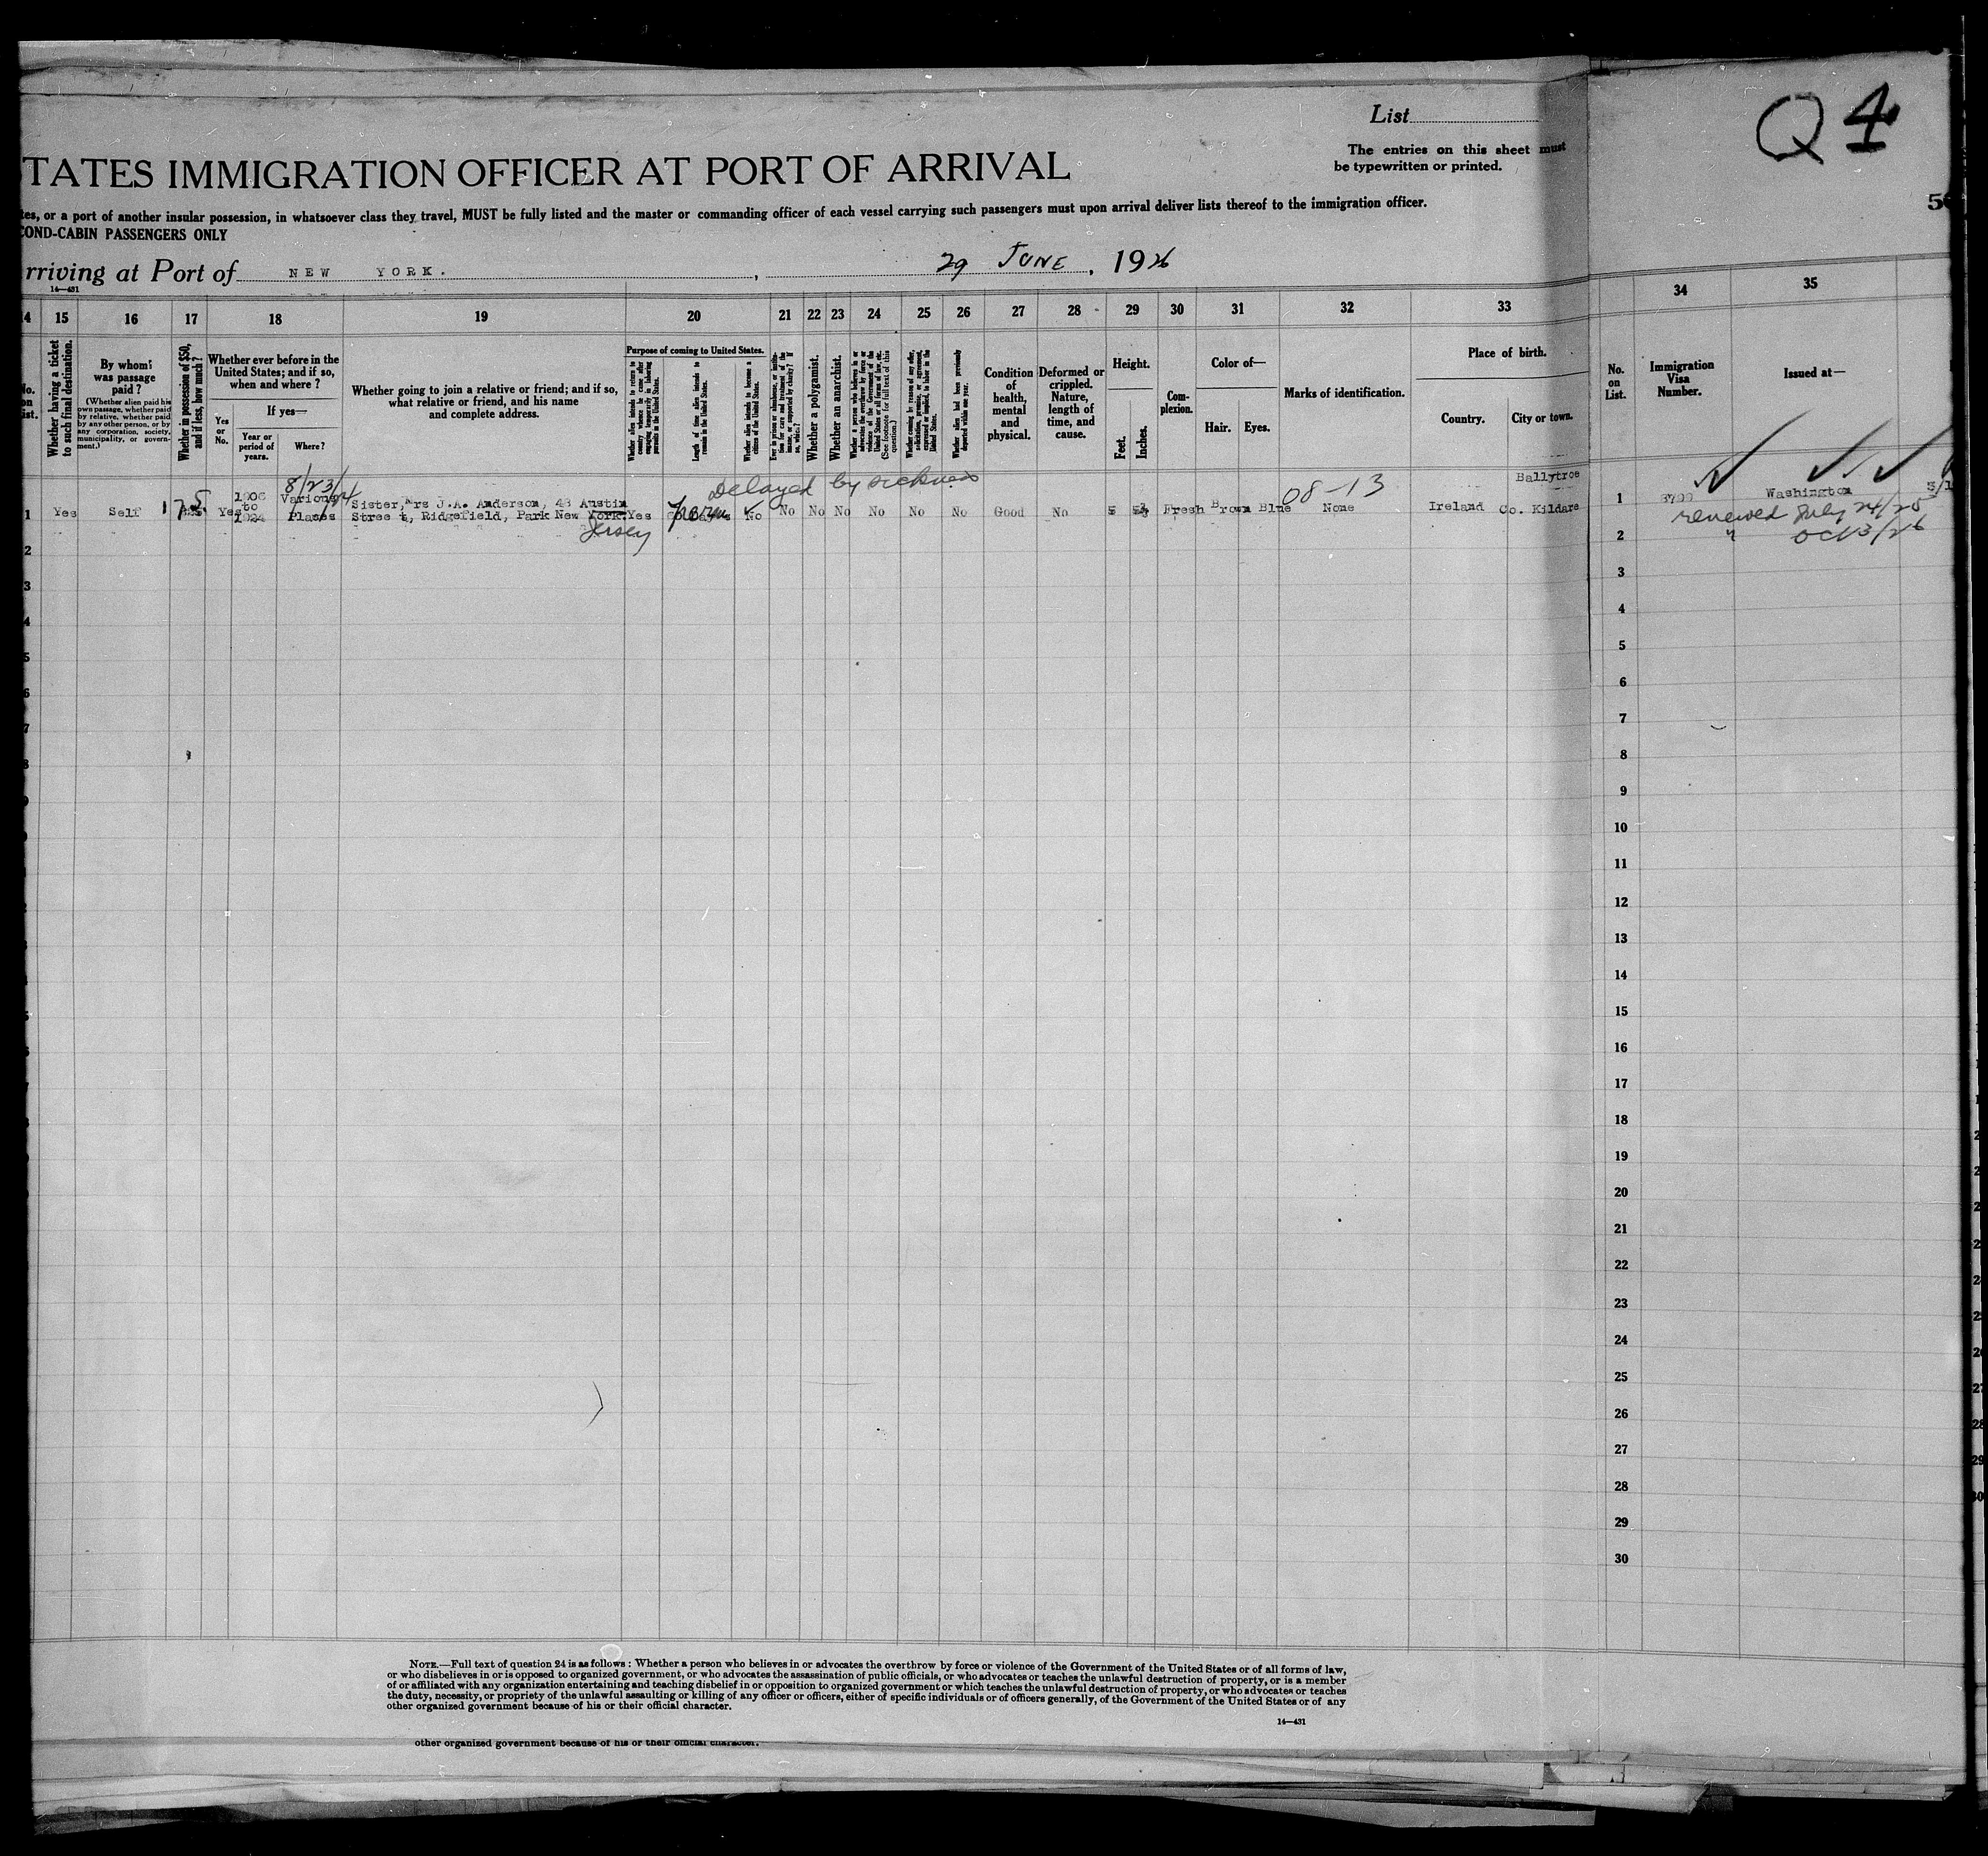 List
Q 4
The entries on this sheet must
be typewritten or printed.
TATES IMMIGRATION OFFICER AT PORT OF ARRIVAL
tes, or a port of another insular possession, in whatsoever class they travel, MUST be fully listed and the master or commanding officer of each vessel carrying such passengers must upon arrival deliver lists thereof to the immigration officer.
COND-CABIN PASSENGERS ONLY
rriving at Port of NEW YORK. , 29 JUNE , 1926
14—431
4 15 16 17 18 19 20 21 22 23 24 25 26 27 28 29 30 31 32 33 34 35
No. on List.
Whether having a ticket to such final destination.
By whom was passage paid?
(Whether alien paid his own passage, whether paid by relative, whether paid by any other person, or by any corporation, society, municipality, or government.)
Whether in possession of $50, and if less, how much?
Whether ever before in the United States; and if so, when and where?
Yes or No.
If yes—
Year or period of years.
Where?
Whether going to join a relative or friend; and if so, what relative or friend, and his name and complete address.
Purpose of coming to United States.
Whether alien intends to return to country whence he came after engaging temporarily in laboring pursuits in the United States.
Length of time alien intends to remain in the United States.
Whether alien intends to become a citizen of the United States.
Ever in prison or almshouse, or institution for care and treatment of the insane, or supported by charity? If so, which?
Whether a polygamist.
Whether an anarchist.
Whether a person who believes in or advocates the overthrow by force or violence of the Government of the United States or all forms of law, etc. (See footnote for full text of this question.)
Whether coming by reason of any offer, solicitation, promise, or agreement, expressed or implied, to labor in the United States.
Whether alien had been previously deported within one year.
Condition of health, mental and physical.
Deformed or crippled. Nature, length of time, and cause.
Height.
Feet. Inches.
Complexion.
Color of—
Hair. Eyes.
Marks of identification.
Place of birth.
Country. City or town.
No. on List.
Immigration Visa Number.
Issued at—
8/23/24
Delayed by sickness
08-13
Ballytroe
1906 Various Sister, Mrs J.A. Anderson, 48 Austin
1 Yes Self 175 Yes to 1924 Places Street, Ridgefield, Park New York. Yes Perm No No No No No No No Good No 5 Fresh Brown Blue None Ireland Co. Kildare
Jersey
1 Washington
renewed July 24/25
" Oct 3/26
2
3
4
5
6
7
8
9
10
11
12
13
14
15
16
17
18
19
20
21
22
23
24
25
26
27
28
29
30
NOTE.—Full text of question 24 is as follows: Whether a person who believes in or advocates the overthrow by force or violence of the Government of the United States or of all forms of law,
or who disbelieves in or is opposed to organized government, or who advocates the assassination of public officials, or who advocates or teaches the unlawful destruction of property, or is a member
of or affiliated with any organization entertaining and teaching disbelief in or opposition to organized government or which teaches the unlawful destruction of property, or who advocates or teaches
the duty, necessity, or propriety of the unlawful assaulting or killing of any officer or officers, either of specific individuals or of officers generally, of the Government of the United States or of any
other organized government because of his or their official character.
14—431
other organized government because of his or their official character.